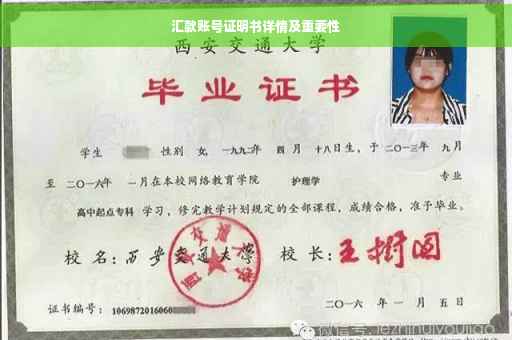 汇款账号证明书详情及重要性
西安交通大学
毕业证书
学生 性别 女, 一九九二年 四月 十八日生, 于二〇一三年 九月
至二〇一六年 一月在本校网络教育学院 护理学 专业
高中起点专科 学习, 修完教学计划规定的全部课程, 成绩合格, 准予毕业。
校名: 西安交通大学 校长: 王树国
西安交通大学
证书编号: 1069872016060
二〇一六年一月五日
微信号: jezhinuiyoujiao